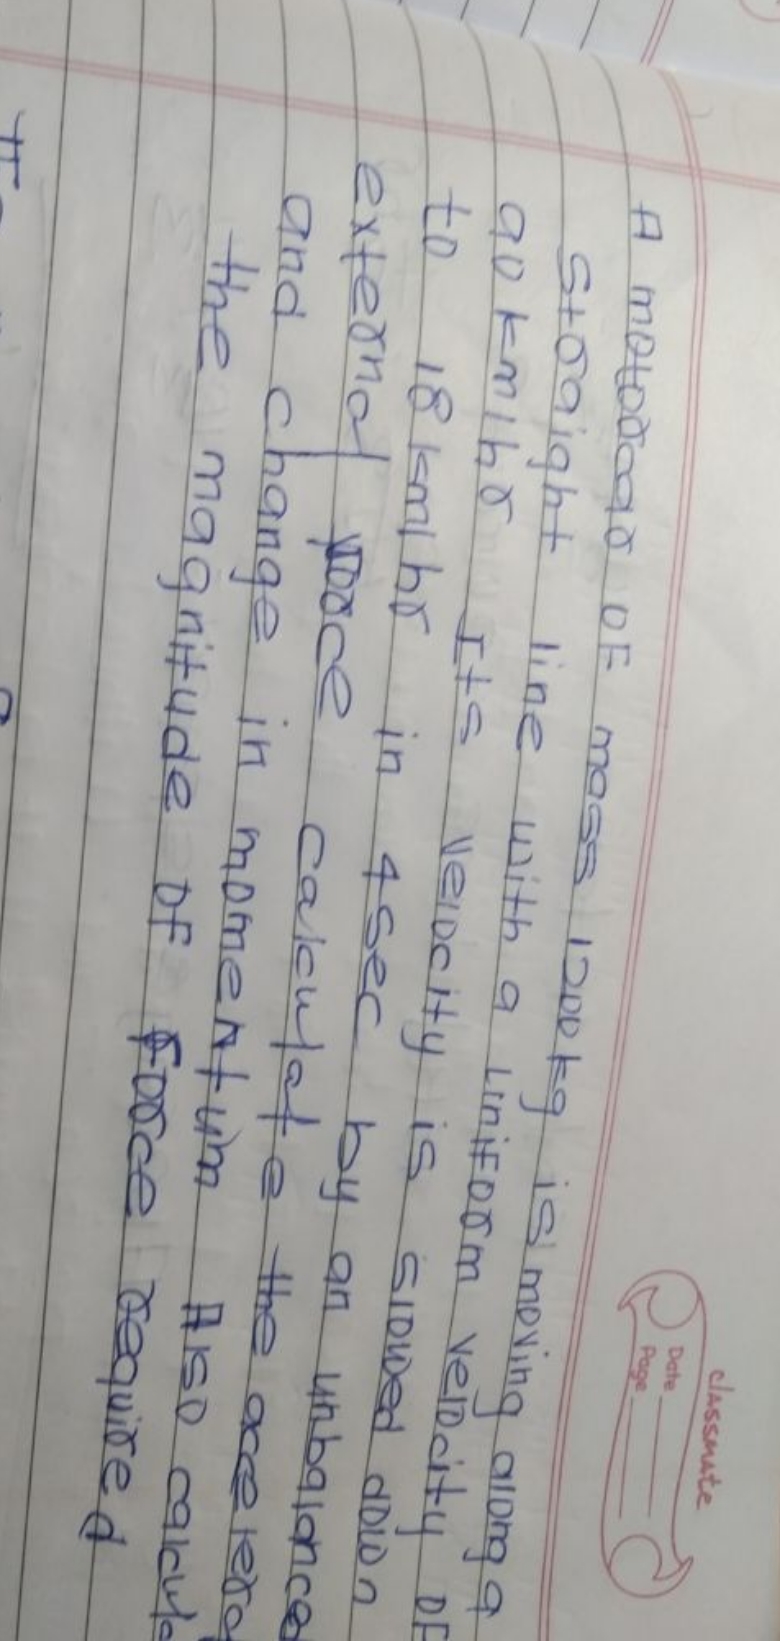 classmate
Date
Page
A motorcar of mass 1200 kg is moving along a
straight line with a uniform velocity of
90 km/hr Its velocity is slowed down
to 18 km/hr in 4 sec by an unbalanced
external force calculate the accelera
and change in momentum Also calcula
the magnitude of force required